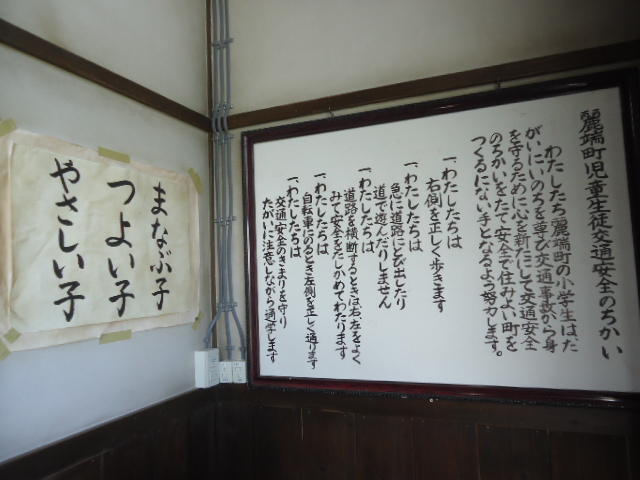 麗端町児童生徒交通安全のちかい
わたしたち麗端町の小学生は、た
がいにいのちを尊び交通事故から身
を守るために心を新たにして交通安全
のちかいをたて安全で住みよい町を
つくるにない手となるよう努力します。
一、わたしたちは
右側を正しく歩きます
一、わたしたちは
急に道路にとび出したり
道で遊んだりしません
一、わたしたちは
道路を横断するときは右、左をよく
みて安全をたしかめてわたります
一、わたしたちは
自転車にのるとき左側を正しく通ります
一、わたしたちは
交通安全のきまりを守り
たがいに注意しながら通学します
まなぶ子
つよい子
やさしい子